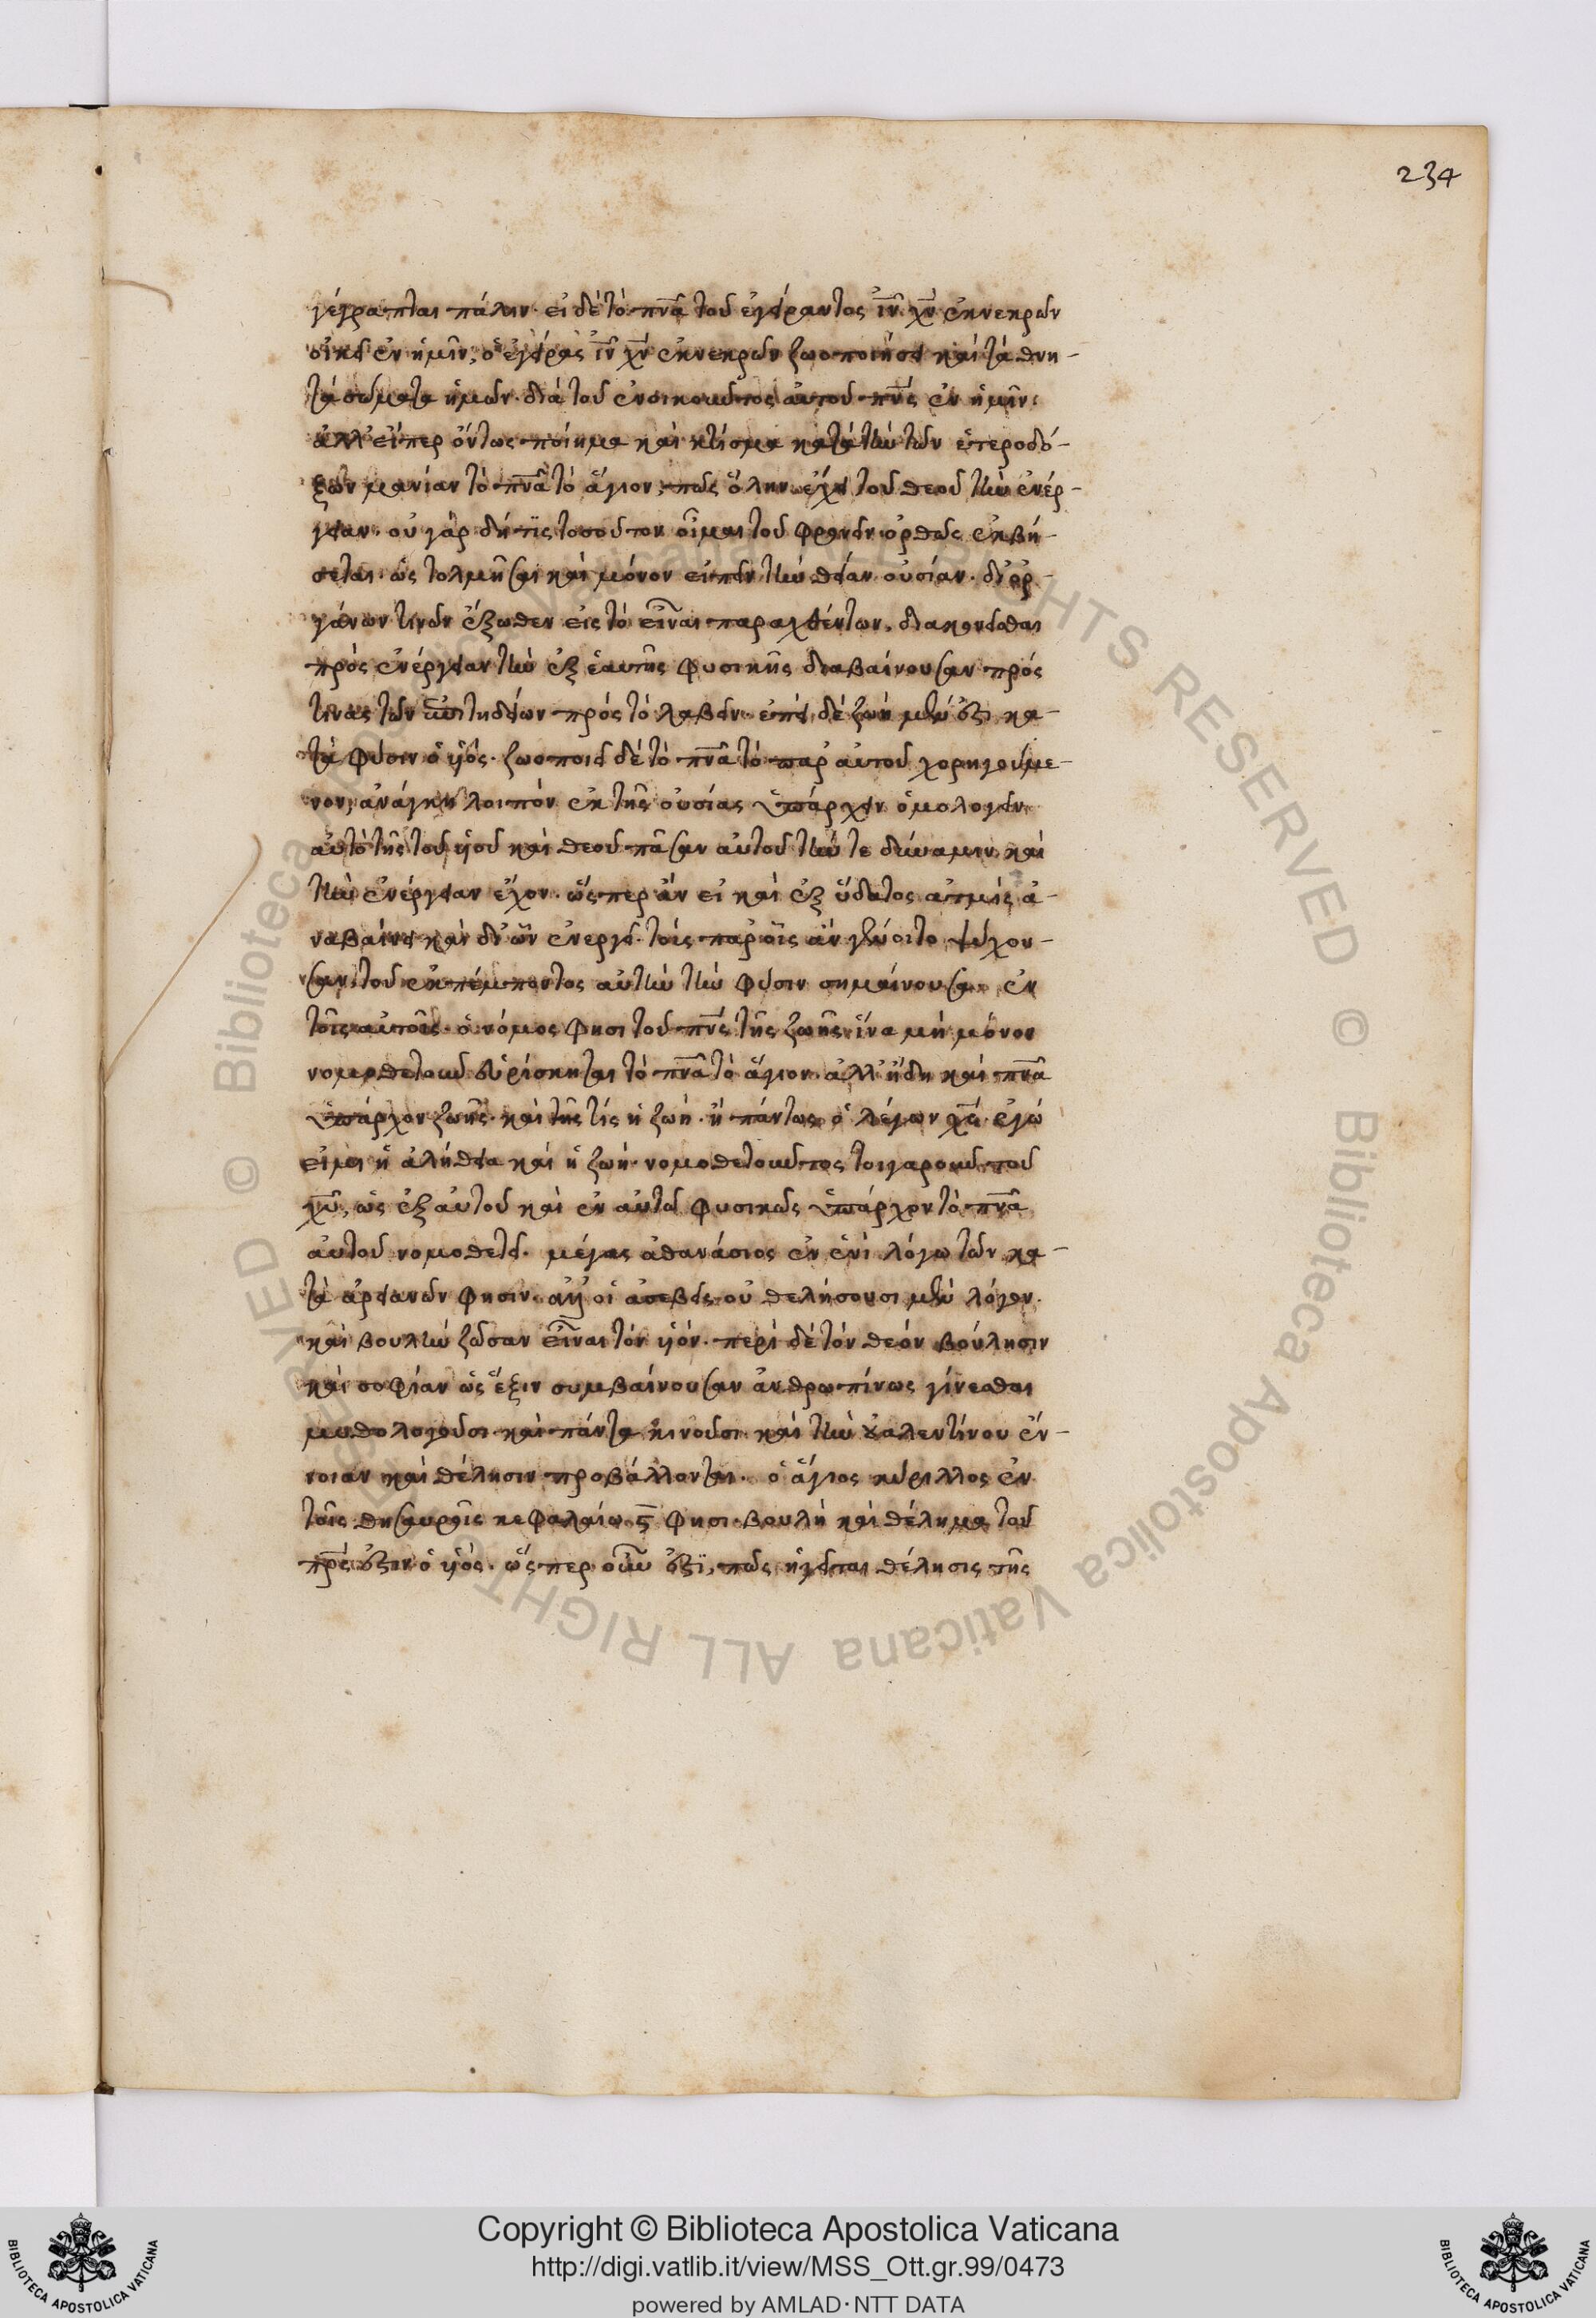 234
γέγραπται πάλιν. εἰ δὲ τὸ πνᾶ τοῦ ἐγείραντος ἰν χν ἐκ νεκρῶν
οἰκεῖ ἐν ἡμῖν, ὁ ἐγείρας ἰν χν ἐκ νεκρῶν ζωοποιήσει καὶ τὰ θνη-
τὰ σώματα ἡμῶν. διὰ τοῦ ἐνοικοῦντος αὐτοῦ πνς ἐν ἡμῖν:
ἀλλ' εἴπερ ὄντως ποίημα καὶ κτίσμα κατὰ τὴν τῶν ἑτεροδό-
ξων μανίαν τὸ πνᾶ τὸ ἅγιον, πῶς ὅλην ἔχει τοῦ θεοῦ τὴν ἐνέρ-
γειαν. οὐ γὰρ δή τις τοσοῦτον οἶμαι τοῦ φρονεῖν ὀρθῶς ἐκβή-
σεται. ὡς τολμῆσαι καὶ μόνον εἰπεῖν τὴν θείαν οὐσίαν. δι' ὀρ-
γάνων τινῶν ἔξωθεν εἰς τὸ εἶναι παραχθέντων, διακονεῖσθαι
πρὸς ἐνέργειαν τὴν ἐξ ἑαυτῆς φυσικῆς διαβαίνουσαν πρός
τινας τῶν ἐπιτηδείων πρὸς τὸ λαβεῖν. ἐπεὶ δὲ ζωὴ μέν ἐστι κα-
τὰ φύσιν ὁ υἱός. ζωοποιεῖ δὲ τὸ πνᾶ τὸ παρ' αὐτοῦ χορηγούμε-
νον, ἀνάγκη λοιπὸν ἐκ τῆς οὐσίας ὑπάρχειν ὁμολογεῖν
αὐτὸ τῆς τοῦ υἱοῦ καὶ θεοῦ πᾶσαν αὐτοῦ τήν τε δύναμιν καὶ
τὴν ἐνέργειαν ἔχον. ὥσπερ ἂν εἰ καὶ ἐξ ὕδατος ἀτμὶς ἀ-
ναβαίνει καὶ δι' ὧν ἐνεργεῖ. τοῖς παρ' οἷς ἂν γένοιτο ψύχου-
σαν τοῦ ἐκπέμποντος αὐτὴν τὴν φύσιν σημαίνουσα ἐν
τοῖς αὐτοῖς. ὁ νόμος φησὶ τοῦ πνς τῆς ζωῆς. ἵνα μὴ μόνον
νομοθετοῦν εὑρίσκηται τὸ πνᾶ τὸ ἅγιον. ἀλλ' ἤδη καὶ πνᾶ
ὑπάρχον ζωῆς. καὶ τῆς τίς ἡ ζωή. ἢ πάντως ὁ λέγων χς. ἐγώ
εἰμι ἡ ἀλήθεια καὶ ἡ ζωή. νομοθετοῦντος τοιγαροῦν τοῦ
χυ, ὡς ἐξ αὐτοῦ καὶ ἐν αὐτῶ φυσικῶς ὑπάρχον τὸ πνᾶ
αὐτοῦ νομοθετεῖ. μέγας ἀθανάσιος ἐν ἑνὶ λόγω τῶν κα-
τὰ ἀρειανῶν φησιν. ἀλλ' οἱ ἀσεβεῖς οὐ θελήσουσι μὲν λόγον.
καὶ βουλὴν ζῶσαν εἶναι τὸν υἱόν. περὶ δὲ τὸν θεὸν βούλησιν
καὶ σοφίαν ὡς ἕξιν συμβαίνουσαν ἀνθρωπίνως γίνεσθαι
μυθολογοῦσι καὶ πάντα κινοῦσι. καὶ τὴν οὐαλεντίνου ἔν-
νοιαν καὶ θέλησιν προβάλλονται. ὁ ἅγιος κύριλλος ἐν
τοῖς θησαυροῖς κεφαλαίω ϛ φησι. βουλὴ καὶ θέλημα τοῦ
πρς ἐστιν ὁ υἱός. ὥσπερ οὖν ἐστι, πῶς ἡγεῖται θέλησις τῆς
© Biblioteca Apostolica Vaticana ALL RIGHTS RESERVED © Biblioteca Apostolica Vaticana ALL RIGHTS RESERVED
Copyright © Biblioteca Apostolica Vaticana
http://digi.vatlib.it/view/MSS_Ott.gr.99/0473
powered by AMLAD·NTT DATA
BIBLIOTECA APOSTOLICA VATICANA
BIBLIOTECA APOSTOLICA VATICANA